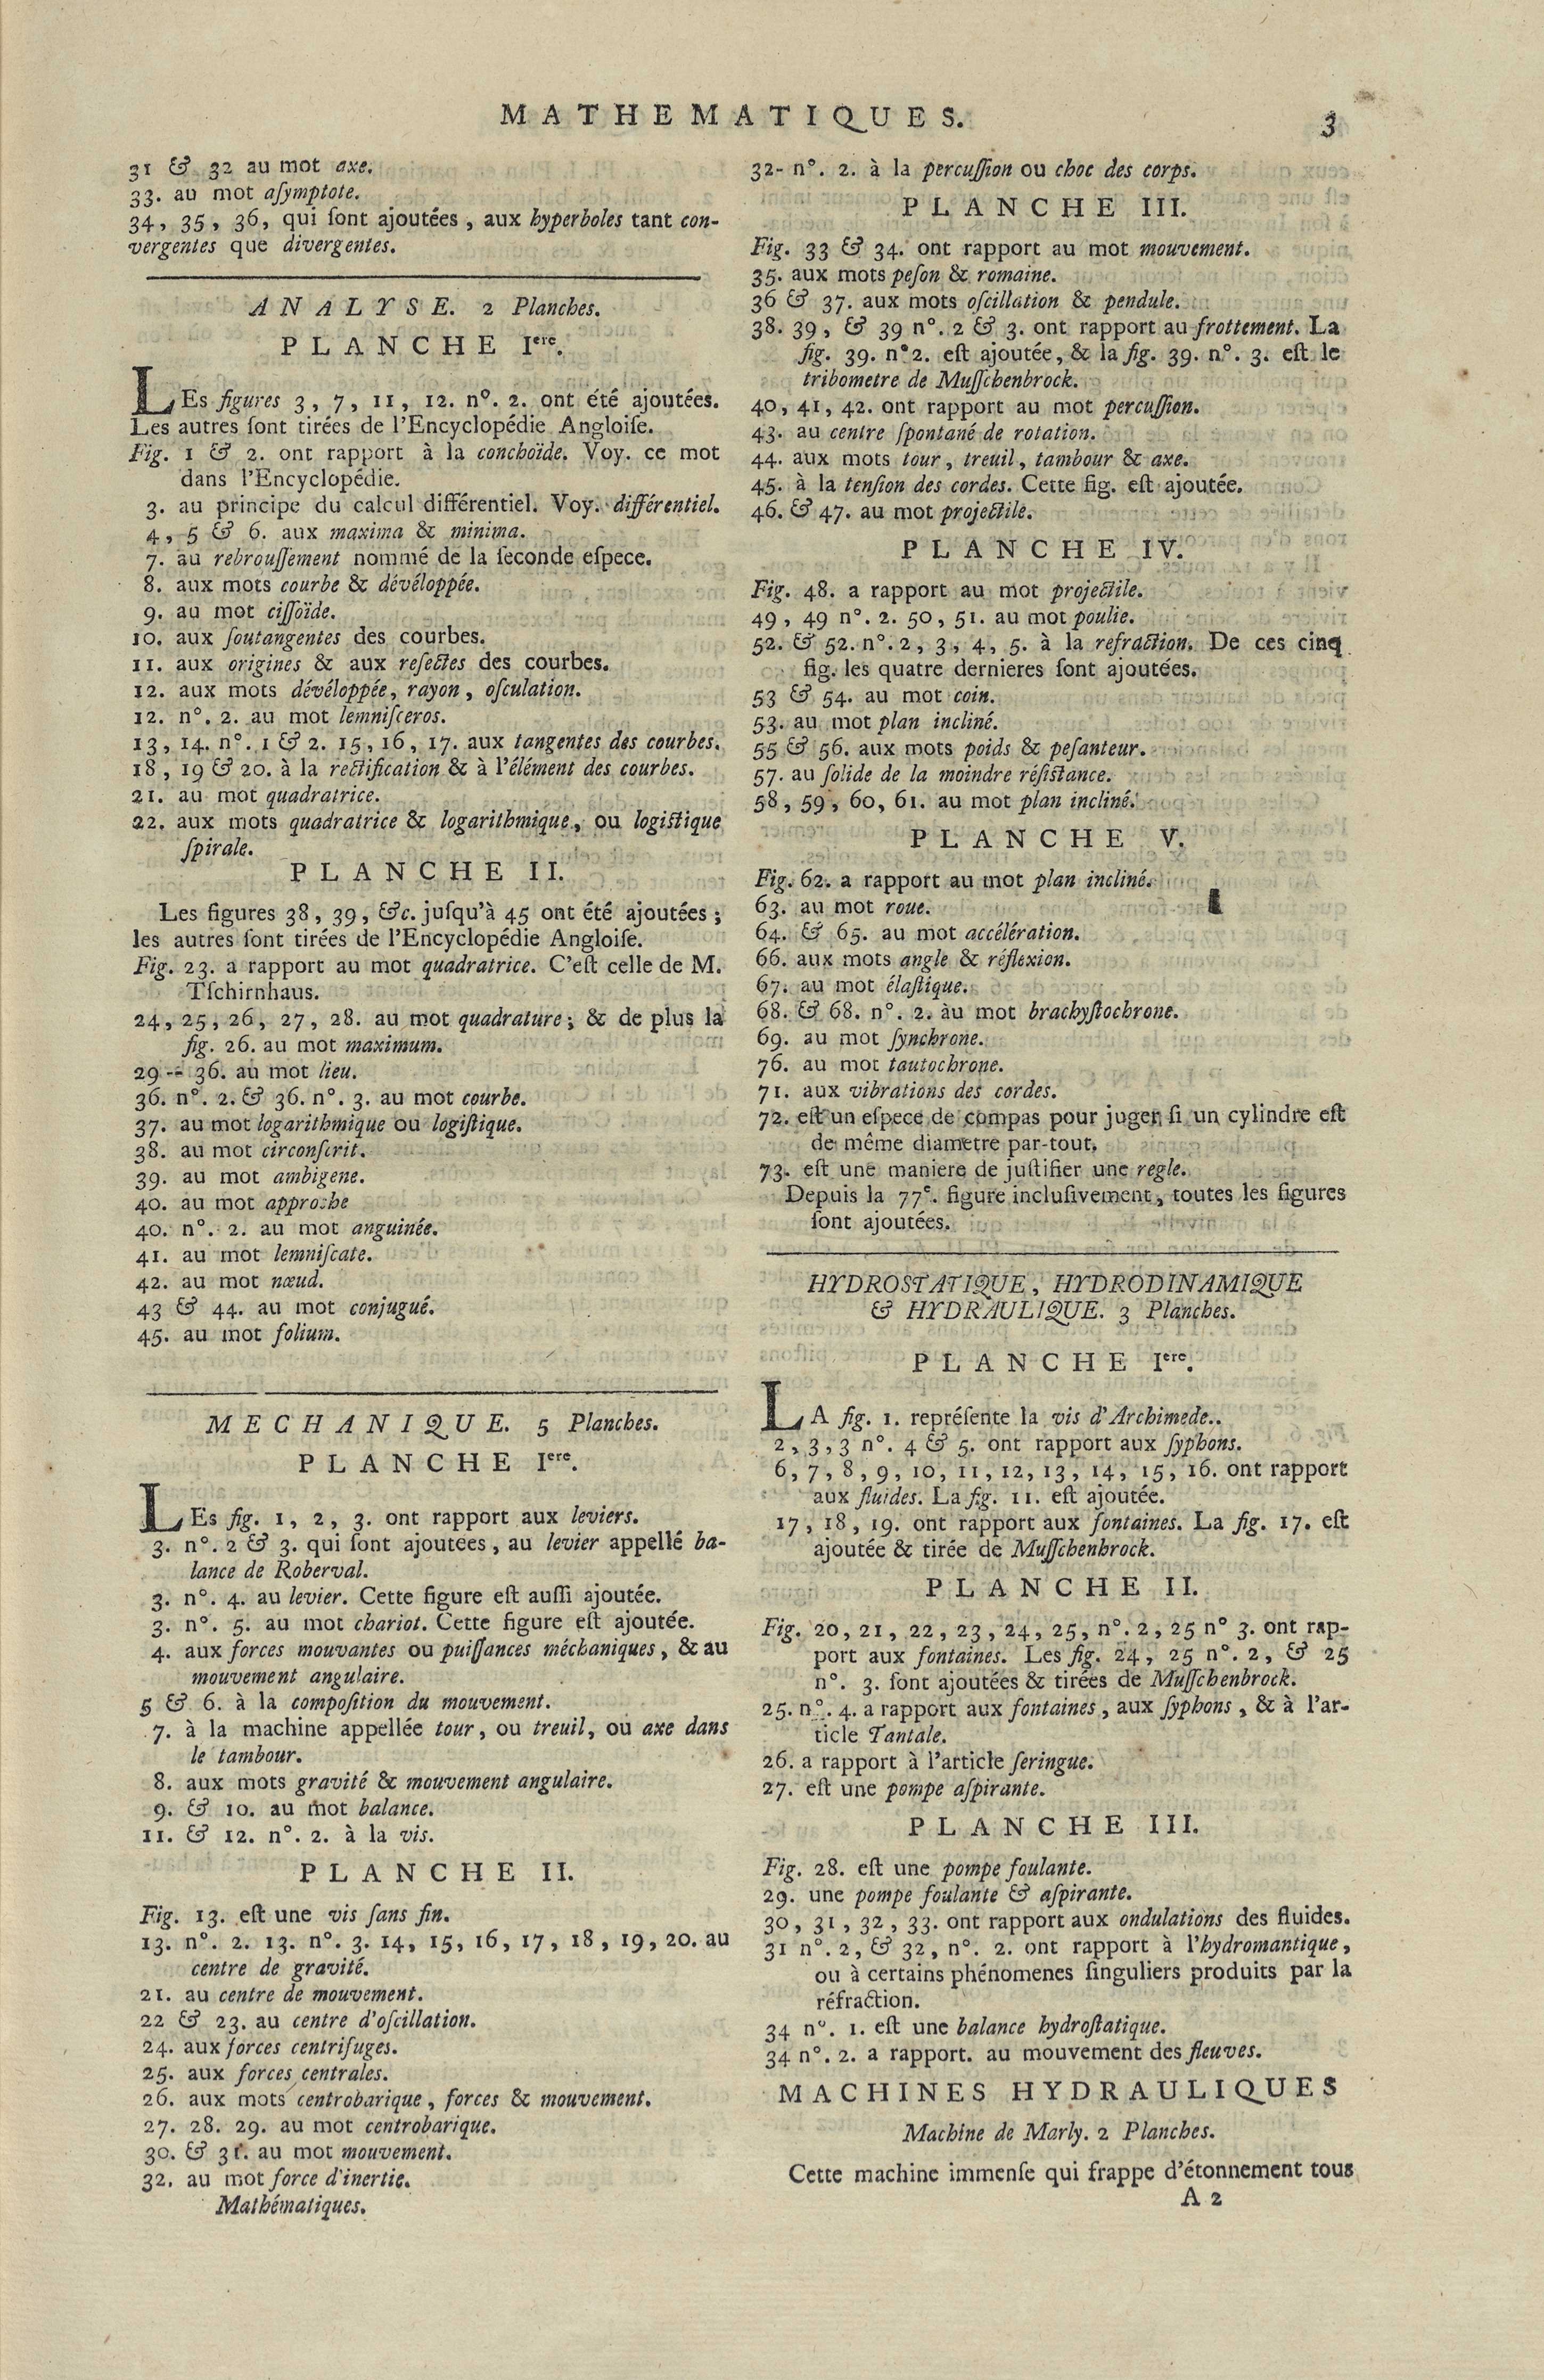 MATHEMATIQUES.
3
31 & 32 au mot axe.
33. au mot aſymptote.
34, 35, 36, qui ſont ajoutées, aux hyperboles tant con-
vergentes que divergentes.
ANALYSE. 2 Planches.
PLANCHE Iere.
LEs figures 3, 7, 11, 12. nº. 2. ont été ajoutées.
Les autres ſont tirées de l'Encyclopédie Angloiſe.
Fig. 1 & 2. ont rapport à la conchoïde. Voy. ce mot
dans l'Encyclopédie.
3. au principe du calcul différentiel. Voy. différentiel.
4, 5 & 6. aux maxima & minima.
7. au rebrouſſement nommé de la ſeconde eſpece.
8. aux mots courbe & dévéloppée.
9. au mot ciſſoïde.
10. aux ſoutangentes des courbes.
11. aux origines & aux reſectes des courbes.
12. aux mots dévéloppée, rayon, oſculation.
12. nº. 2. au mot lemniſceros.
13, 14. nº. 1 & 2. 15, 16, 17. aux tangentes des courbes.
18, 19 & 20. à la rectification & à l'élément des courbes.
21. au mot quadratrice.
22. aux mots quadratrice & logarithmique, ou logiſtique
ſpirale.
PLANCHE II.
Les figures 38, 39, &c. juſqu'à 45 ont été ajoutées;
les autres ſont tirées de l'Encyclopédie Angloiſe.
Fig. 23. a rapport au mot quadratrice. C'eſt celle de M.
Tſchirnhaus.
24, 25, 26, 27, 28. au mot quadrature; & de plus la
fig. 26. au mot maximum.
29 -- 36. au mot lieu.
36. nº. 2. & 36. nº. 3. au mot courbe.
37. au mot logarithmique ou logiſtique.
38. au mot circonſcrit.
39. au mot ambigene.
40. au mot approche
40. nº. 2. au mot anguinée.
41. au mot lemniſcate.
42. au mot nœud.
43 & 44. au mot conjugué.
45. au mot folium.
MECHANIQUE. 5 Planches.
PLANCHE Iere.
LEs fig. 1, 2, 3. ont rapport aux leviers.
3. nº. 2 & 3. qui ſont ajoutées, au levier appellé ba-
lance de Roberval.
3. nº. 4. au levier. Cette figure eſt auſſi ajoutée.
3. nº. 5. au mot chariot. Cette figure eſt ajoutée.
4. aux forces mouvantes ou puiſſances méchaniques, & au
mouvement angulaire.
5 & 6. à la compoſition du mouvement.
7. à la machine appellée tour, ou treuil, ou axe dans
le tambour.
8. aux mots gravité & mouvement angulaire.
9. & 10. au mot balance.
11. & 12. nº. 2. à la vis.
PLANCHE II.
Fig. 13. eſt une vis ſans fin.
13. nº. 2. 13. nº. 3. 14, 15, 16, 17, 18, 19, 20. au
centre de gravité.
21. au centre de mouvement.
22 & 23. au centre d'oſcillation.
24. aux forces centrifuges.
25. aux forces centrales.
26. aux mots centrobarique, forces & mouvement.
27. 28. 29. au mot centrobarique.
30. & 31. au mot mouvement.
32. au mot force d'inertie.
Mathématiques.
32- nº. 2. à la percuſſion ou choc des corps.
PLANCHE III.
Fig. 33 & 34. ont rapport au mot mouvement.
35. aux mots peſon & romaine.
36 & 37. aux mots oſcillation & pendule.
38. 39, & 39 nº. 2 & 3. ont rapport au frottement. La
fig. 39. nº 2. eſt ajoutée, & la fig. 39. nº. 3. eſt le
tribometre de Muſſchenbrock.
40, 41, 42. ont rapport au mot percuſſion.
43. au centre ſpontané de rotation.
44. aux mots tour, treuil, tambour & axe.
45. à la tenſion des cordes. Cette fig. eſt ajoutée.
46. & 47. au mot projectile.
PLANCHE IV.
Fig. 48. a rapport au mot projectile.
49, 49 nº. 2. 50, 51. au mot poulie.
52. & 52. nº. 2, 3, 4, 5. à la refraction. De ces cinq
fig. les quatre dernieres ſont ajoutées.
53 & 54. au mot coin.
53. au mot plan incliné.
55 & 56. aux mots poids & peſanteur.
57. au ſolide de la moindre réſiſtance.
58, 59, 60, 61. au mot plan incliné.
PLANCHE V.
Fig. 62. a rapport au mot plan incliné.
63. au mot roue.
64. & 65. au mot accélération.
66. aux mots angle & réflexion.
67. au mot élaſtique.
68. & 68. nº. 2. au mot brachyſtochrone.
69. au mot ſynchrone.
76. au mot tautochrone.
71. aux vibrations des cordes.
72. eſt un eſpece de compas pour juger ſi un cylindre eſt
de même diametre par-tout.
73. eſt une maniere de juſtifier une regle.
Depuis la 77e. figure incluſivement, toutes les figures
ſont ajoutées.
HYDROSTATIQUE, HYDRODINAMIQUE
& HYDRAULIQUE. 3 Planches.
PLANCHE Iere.
LA fig. 1. repréſente la vis d'Archimede..
2, 3, 3 nº. 4 & 5. ont rapport aux ſyphons.
6, 7, 8, 9, 10, 11, 12, 13, 14, 15, 16. ont rapport
aux fluides. La fig. 11. eſt ajoutée.
17, 18, 19. ont rapport aux fontaines. La fig. 17. eſt
ajoutée & tirée de Muſſchenbrock.
PLANCHE II.
Fig. 20, 21, 22, 23, 24, 25, nº. 2, 25 nº 3. ont rap-
port aux fontaines. Les fig. 24, 25 nº. 2, & 25
nº. 3. ſont ajoutées & tirées de Muſſchenbrock.
25. nº. 4. a rapport aux fontaines, aux ſyphons, & à l'ar-
ticle Tantale.
26. a rapport à l'article ſeringue.
27. eſt une pompe aſpirante.
PLANCHE III.
Fig. 28. eſt une pompe foulante.
29. une pompe foulante & aſpirante.
30, 31, 32, 33. ont rapport aux ondulations des fluides.
31 nº. 2, & 32, nº. 2. ont rapport à l'hydromantique,
ou à certains phénomenes ſinguliers produits par la
réfraction.
34 nº. 1. eſt une balance hydroſtatique.
34 nº. 2. a rapport. au mouvement des fleuves.
MACHINES HYDRAULIQUES
Machine de Marly. 2 Planches.
Cette machine immenſe qui frappe d'étonnement tous
A 2